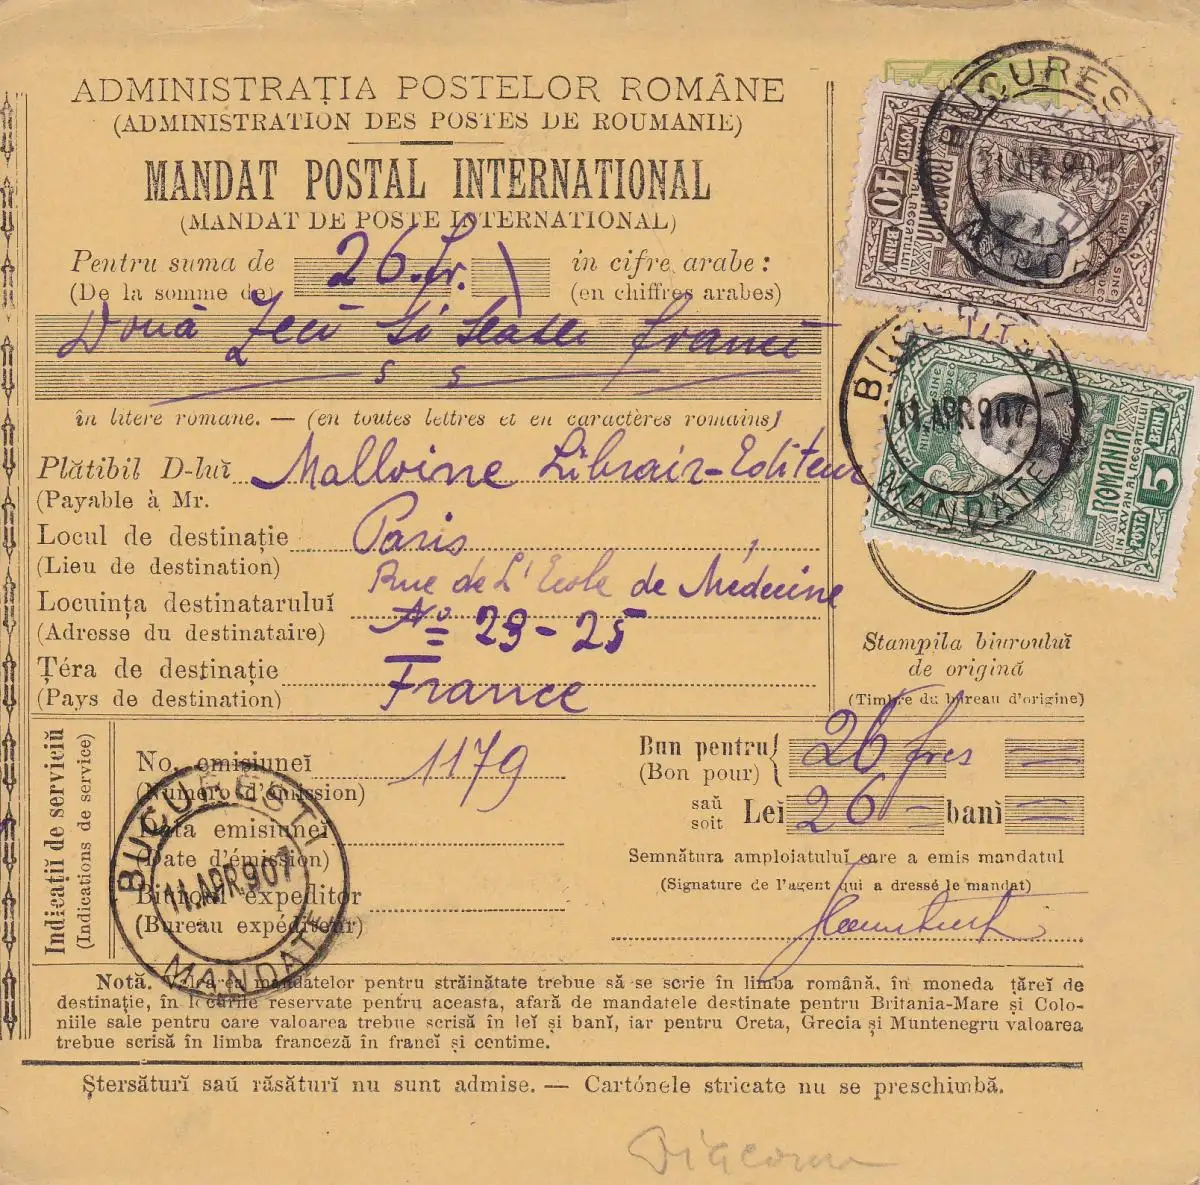 ADMINISTRAȚIA POSTELOR ROMÂNE
(ADMINISTRATION DES POSTES DE ROUMANIE)
MANDAT POSTAL INTERNATIONAL
(MANDAT DE POSTE INTERNATIONAL)
Pentru suma de 26.fr. în cifre arabe:
(De la somme de) (en chiffres arabes)
Două Zeci și sease franci
în litere romane. — (en toutes lettres et en caractères romains)
Plătibil D-luĭ Malloine Librair-Editeur
(Payable à Mr.
Locul de destinație Paris
(Lieu de destination)
Rue de L'Ecole de Médecine
Locuința destinataruluĭ
(Adresse du destinataire) No 23-25
Țéra de destinație
(Pays de destination) France
Stampila biurouluĭ
de origină
(Timbre du bureau d'origine)
BUCURESTI
11.APR.907
MANDATE
ROMANIA
40 BANI
POSTA
BUCURESTI
11.APR.907
MANDATE
ROMANIA
IN XXV AN AL REGATULUI
POSTA 5 BANI
Indicațiĭ de serviciŭ
(Indications de service)
No. emisiuneĭ 1179
(Numéro d'émission)
Data emisiuneĭ
(Date d'émission)
Biuroul expeditor
(Bureau expéditeur)
BUCURESTI
11.APR.907
MANDATE
Bun pentru 26 frcs
(Bon pour)
saŭ
soit Leĭ 26 banĭ
Semnătura amploiatuluĭ care a emis mandatul
(Signature de l'agent qui a dressé le mandat)
Notă. Valoarea mandatelor pentru străinătate trebue să se scrie în limba română, în moneda țăreĭ de
destinație, în locurile reservate pentru aceasta, afară de mandatele destinate pentru Britania-Mare și Colo-
niile sale pentru care valoarea trebue scrisă în leĭ și banĭ, iar pentru Creta, Grecia și Muntenegru valoarea
trebue scrisă în limba franceză în francĭ și centime.
Ștersăturĭ saŭ răsăturĭ nu sunt admise. — Cartónele stricate nu se preschimbă.